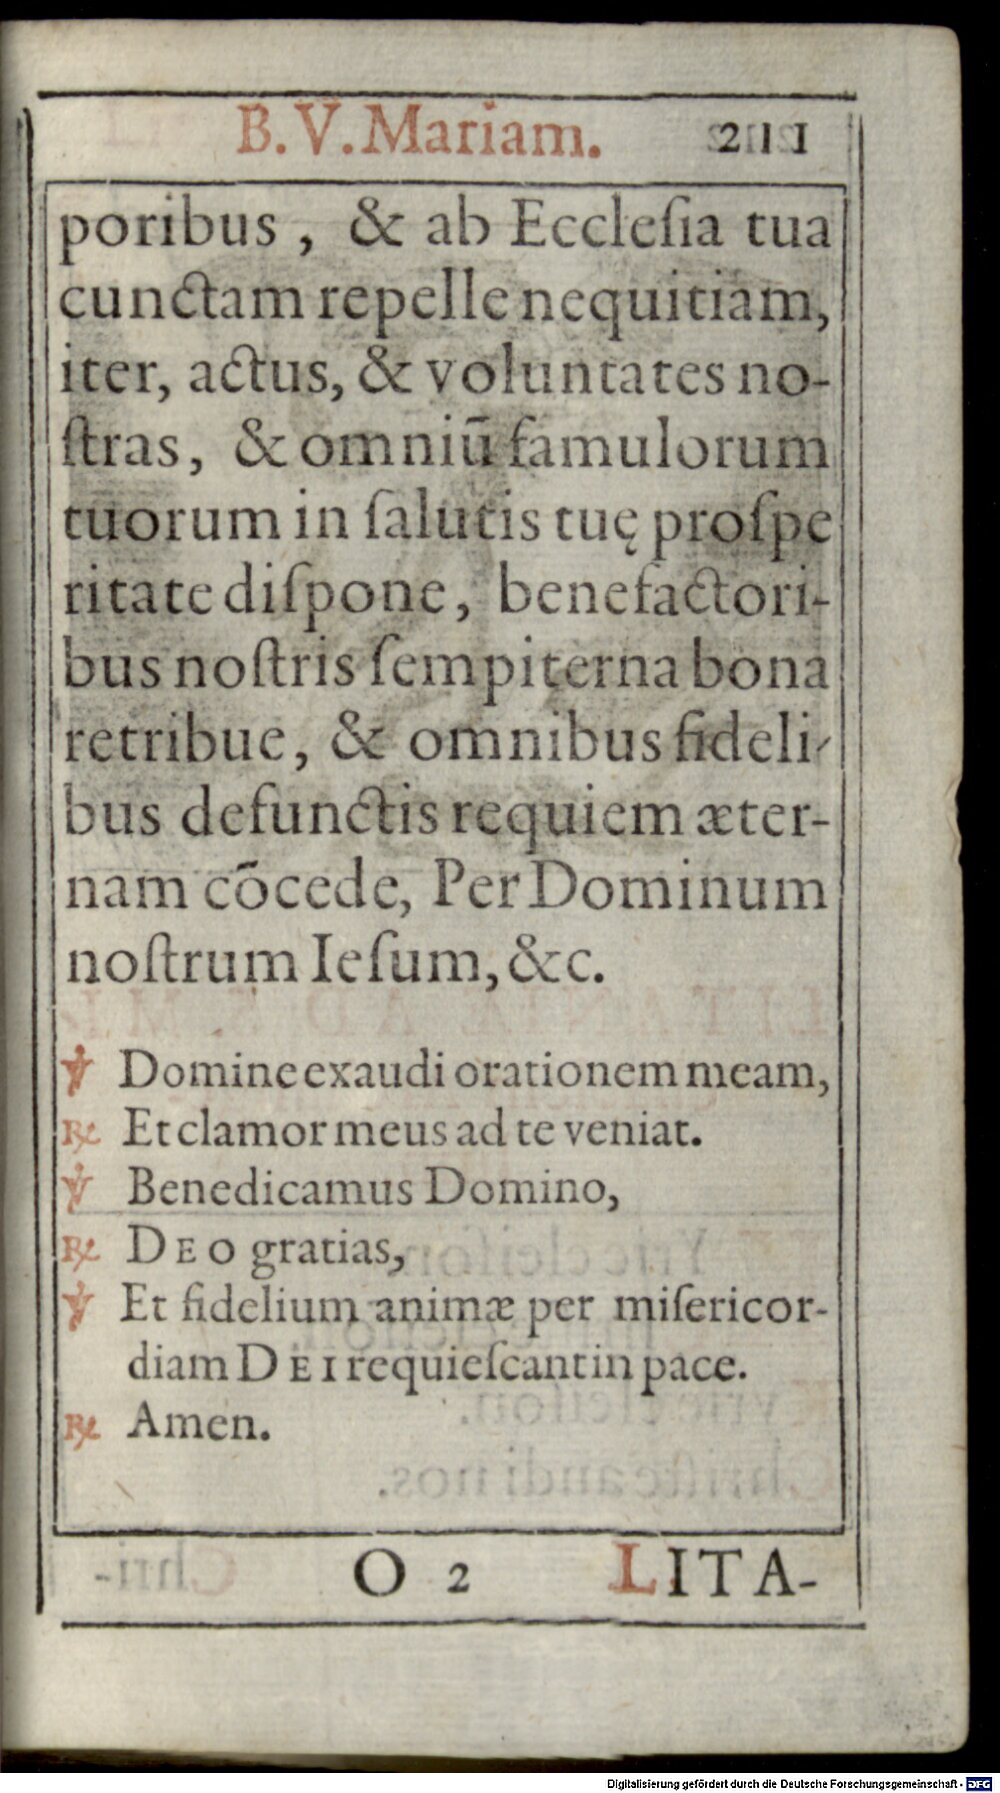 B. V. Mariam. 211
poribus, & ab Eccleſia tua
cunctam repelle nequitiam,
iter, actus, & voluntates no-
ſtras, & omniũ famulorum
tuorum in ſalutis tuę proſpe
ritate diſpone, benefactori-
bus noſtris ſempiterna bona
retribue, & omnibus fideli-
bus defunctis requiem æter-
nam cõcede, Per Dominum
noſtrum Ieſum, &c.
℣ Domine exaudi orationem meam,
℟ Et clamor meus ad te veniat.
℣ Benedicamus Domino,
℟ DEO gratias,
℣ Et fidelium animæ per miſericor-
diam DEI requieſcant in pace.
℟ Amen.
O 2 LITA-
Digitalisierung gefördert durch die Deutsche Forschungsgemeinschaft - DFG